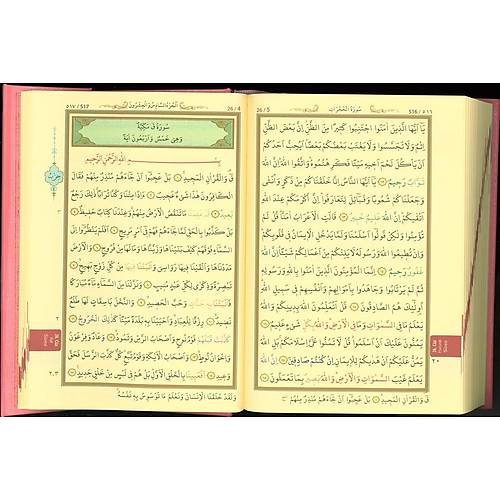 26 / 5 سُورَةُ الْحُجُرَاتِ 516 / ٥١٦
يَٓا اَيُّهَا الَّذٖينَ اٰمَنُوا اجْتَنِبُوا كَثٖيرًا مِنَ الظَّنِّ اِنَّ بَعْضَ الظَّنِّ
اِثْمٌ وَلَا تَجَسَّسُوا وَلَا يَغْتَبْ بَعْضُكُمْ بَعْضًا اَيُحِبُّ اَحَدُكُمْ
اَنْ يَأْكُلَ لَحْمَ اَخٖيهِ مَيْتًا فَكَرِهْتُمُوهُ وَاتَّقُوا اللّٰهَ اِنَّ اللّٰهَ
تَوَّابٌ رَحٖيمٌ ١٢ يَٓا اَيُّهَا النَّاسُ اِنَّا خَلَقْنَاكُمْ مِنْ ذَكَرٍ وَاُنْثٰى
وَجَعَلْنَاكُمْ شُعُوبًا وَقَبَٓائِلَ لِتَعَارَفُوا اِنَّ اَكْرَمَكُمْ عِنْدَ اللّٰهِ
اَتْقٰيكُمْ اِنَّ اللّٰهَ عَلٖيمٌ خَبٖيرٌ ١٣ قَالَتِ الْاَعْرَابُ اٰمَنَّا قُلْ لَمْ
تُؤْمِنُوا وَلٰكِنْ قُولُٓوا اَسْلَمْنَا وَلَمَّا يَدْخُلِ الْاٖيمَانُ فٖي قُلُوبِكُمْ وَاِنْ
تُطٖيعُوا اللّٰهَ وَرَسُولَهُ لَا يَلِتْكُمْ مِنْ اَعْمَالِكُمْ شَيْـًٔا اِنَّ اللّٰهَ
غَفُورٌ رَحٖيمٌ ١٤ اِنَّمَا الْمُؤْمِنُونَ الَّذٖينَ اٰمَنُوا بِاللّٰهِ وَرَسُولِهٖ
ثُمَّ لَمْ يَرْتَابُوا وَجَاهَدُوا بِاَمْوَالِهِمْ وَاَنْفُسِهِمْ فٖي سَبٖيلِ اللّٰهِ
اُو۬لٰٓئِكَ هُمُ الصَّادِقُونَ ١٥ قُلْ اَتُعَلِّمُونَ اللّٰهَ بِدٖينِكُمْ وَاللّٰهُ
يَعْلَمُ مَا فِي السَّمٰوَاتِ وَمَا فِي الْاَرْضِ وَاللّٰهُ بِكُلِّ شَيْءٍ عَلٖيمٌ ١٦
يَمُنُّونَ عَلَيْكَ اَنْ اَسْلَمُوا قُلْ لَا تَمُنُّوا عَلَيَّ اِسْلَامَكُمْ بَلِ اللّٰهُ
يَمُنُّ عَلَيْكُمْ اَنْ هَدٰيكُمْ لِلْاٖيمَانِ اِنْ كُنْتُمْ صَادِقٖينَ ١٧ اِنَّ اللّٰهَ
يَعْلَمُ غَيْبَ السَّمٰوَاتِ وَالْاَرْضِ وَاللّٰهُ بَصٖيرٌ بِمَا تَعْمَلُونَ ١٨
قٓ وَالْقُرْاٰنِ الْمَجٖيدِ ١ بَلْ عَجِبُٓوا اَنْ جَٓاءَهُمْ مُنْذِرٌ مِنْهُمْ
٢٠
٥١٧ / 517 اَلْجُزْءُ السَّادِسُ وَالْعِشْرُونَ 26 / 4
سُورَةُ قٓ مَكِّيَّةٌ
وَهِيَ خَمْسٌ وَاَرْبَعُونَ اٰيَةً
بِسْمِ اللّٰهِ الرَّحْمٰنِ الرَّحٖيمِ
قٓ وَالْقُرْاٰنِ الْمَجٖيدِ ١ بَلْ عَجِبُٓوا اَنْ جَٓاءَهُمْ مُنْذِرٌ مِنْهُمْ فَقَالَ
الْكَافِرُونَ هٰذَا شَيْءٌ عَجٖيبٌ ٢ ءَاِذَا مِتْنَا وَكُنَّا تُرَابًا ذٰلِكَ رَجْعٌ
بَعٖيدٌ ٣ قَدْ عَلِمْنَا مَا تَنْقُصُ الْاَرْضُ مِنْهُمْ وَعِنْدَنَا كِتَابٌ حَفٖيظٌ ٤
بَلْ كَذَّبُوا بِالْحَقِّ لَمَّا جَٓاءَهُمْ فَهُمْ فٖٓي اَمْرٍ مَرٖيجٍ ٥ اَفَلَمْ يَنْظُرُٓوا اِلَى
السَّمَٓاءِ فَوْقَهُمْ كَيْفَ بَنَيْنَاهَا وَزَيَّنَّاهَا وَمَا لَهَا مِنْ فُرُوجٍ ٦ وَالْاَرْضَ
مَدَدْنَاهَا وَاَلْقَيْنَا فٖيهَا رَوَاسِيَ وَاَنْبَتْنَا فٖيهَا مِنْ كُلِّ زَوْجٍ بَهٖيجٍ ٧
تَبْصِرَةً وَذِكْرٰى لِكُلِّ عَبْدٍ مُنٖيبٍ ٨ وَنَزَّلْنَا مِنَ السَّمَٓاءِ مَٓاءً مُبَارَكًا
فَاَنْبَتْنَا بِهٖ جَنَّاتٍ وَحَبَّ الْحَصٖيدِ ٩ وَالنَّخْلَ بَاسِقَاتٍ لَهَا طَلْعٌ
نَضٖيدٌ ١٠ رِزْقًا لِلْعِبَادِ وَاَحْيَيْنَا بِهٖ بَلْدَةً مَيْتًا كَذٰلِكَ الْخُرُوجُ ١١
كَذَّبَتْ قَبْلَهُمْ قَوْمُ نُوحٍ وَاَصْحَابُ الرَّسِّ وَثَمُودُ ١٢ وَعَادٌ وَفِرْعَوْنُ
وَاِخْوَانُ لُوطٍ ١٣ وَاَصْحَابُ الْاَيْكَةِ وَقَوْمُ تُبَّعٍ كُلٌّ كَذَّبَ الرُّسُلَ فَحَقَّ
وَعٖيدِ ١٤ اَفَعَيٖينَا بِالْخَلْقِ الْاَوَّلِ بَلْ هُمْ فٖي لَبْسٍ مِنْ خَلْقٍ جَدٖيدٍ ١٥
وَلَقَدْ خَلَقْنَا الْاِنْسَانَ وَنَعْلَمُ مَا تُوَسْوِسُ بِهٖ نَفْسُهُ